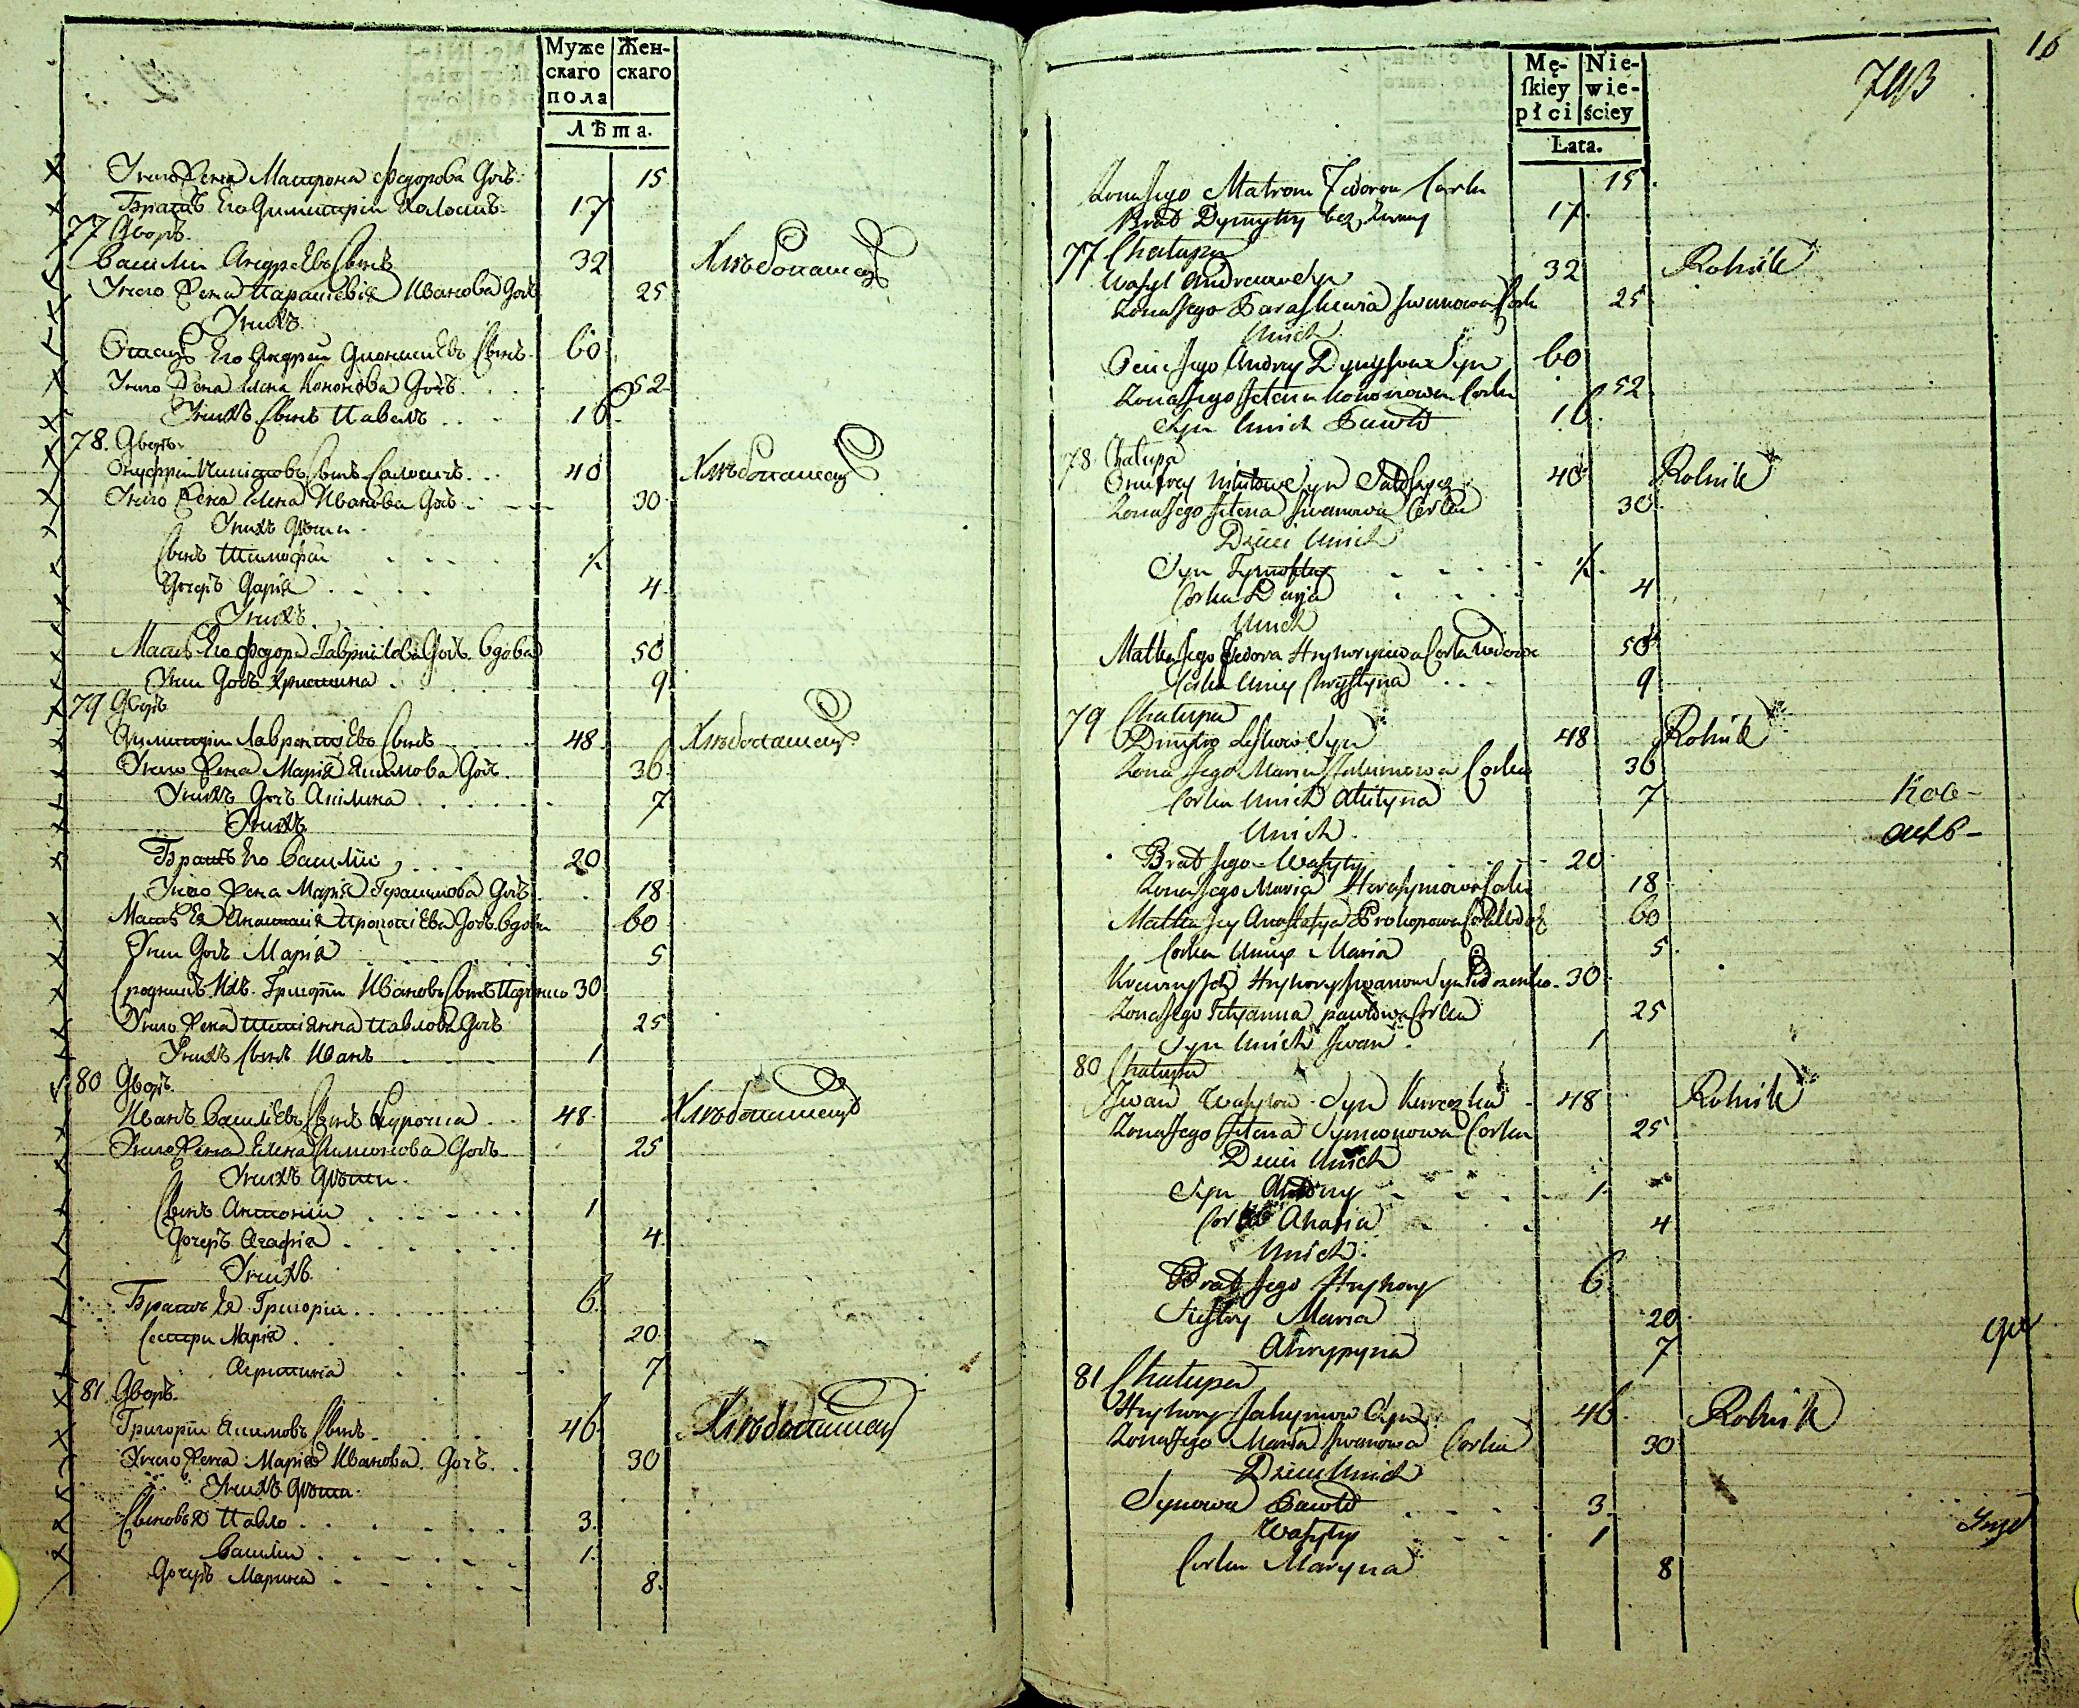 Муже Жен-
скаго скаго
пола
Лѣта.
Унего Жена Матрона Федорова Дочь 15
Братъ Его Димитрій Холостъ 17
77 Дворъ
Василий Андреевъ Сынъ 32 Хлѣбопашецъ
Унего Жена Параскевія Иванова Дочь 25
Унихъ
Отецъ Его Андрей Дионисіевъ Сынъ 60
Унего Жена Елена Кононова Дочь 52
Унихъ Сынъ Павелъ 16
78. Дворъ
Онуфрій Никитовъ Сынъ 40 Хлѣбопашецъ
Унего Жена Елена Иванова Дочь 30
Унихъ Дѣти
Сынъ Тимофей ½
Дочерь Дарія 4
Унихъ
Мать Его Федора Дочь Вдова 50
Уней Дочь Христина 9
79 Дворъ
Димитрій Лаврентіевъ Сынъ 48 Хлѣбопашецъ
Унего Жена Марія Якимова Дочь 36
Унихъ Дочь Акилина 7
Унихъ
Братъ Его Василій 20
Унего Жена Марія Герасимова Дочь 18
Мать Ея Анастасія Прокопіева Дочь Вдова 60
Уней Дочь Марія 5
Сродникъ Ихъ Григорій Ивановъ Сынъ 30
Унего Жена Татіянна Павлова Дочь 25
Унихъ Сынъ Иванъ 1
80 Дворъ
Иванъ Василіевъ Сынъ Курочка 48 Хлѣбопашецъ
Унего Жена Елена Симонова Дочь 25
Унихъ Дѣти
Сынъ Антоній 1
Дочерь Агафія 4
Унихъ
Братъ Ея Григорій 6
Сестры Марія 20
Агрипина 7
81 Дворъ
Григорій Якимовъ Сынъ 46 Хлѣбопашецъ
Унего Жена Марія Иванова Дочь 30
Унихъ Дѣти
Сыновья Павло 3
Василій 1
Дочерь Марина 8
16
793
Mę- Nie-
ſkiey wie-
płci ściey
Lata.
Zona Jego Matrona Fedorowa Corka 15
Brat Dymytry bez Zenny 17
77 Chałupa
Wasyl Andreiow Syn 32 Rolnik
Zona Jego Paraskewia Jwanowa Corka 25
Unich
Ociec Jego Andrey Syn 60
Zona Jego Jełena Kononowa Corka 52
Syn Unich Pawło 16
78 Chałupa
Onufrey Nikitow Syn 40 Rolnik
Zona Jego Jełena Jwanowa Corka 30
Dzieci Unich
Syn Tymofiey ½
Corka Darja 4
Unich
Matka Jego Fedora Corka Wdowa 50
Corka Uniey Chrystyna 9
79 Chałupa
Dmytro Leskow Syn 48 Rolnik
Zona Jego Maria Jakimowa Corka 36
Corka Unich Akilyna 7
Unich
Brat Jego Wasyly 20
Zona Jego Maria Herasymowa Corka 18
Matka Jey Anastazya Prokopowa Corka Wdowa 60
Corka Uniey Maria 5
Krewny Jch Hryhory Jwanow Syn 30
Zona Jego Tetyanna Pawłowa Corka 25
Syn Unich Jwan 1
80 Chałupa
Jwan Wasylow Syn Kuroczka 48 Rolnik
Zona Jego Jełena Symeonowa Corka 25
Dzieci Unich
Syn Antony 1
Corka Ahafia 4
Unich
Brat Jego Hryhory 6
Siestry Maria 20
Ahrypyna 7
81 Chałupa
Hryhory Jakymow Syn 46 Rolnik
Zona Jego Maria Jwanowa Corka 30
Dzieci Unich
Synowa Pawło 3
Wasyly 1
Corka Maryna 8